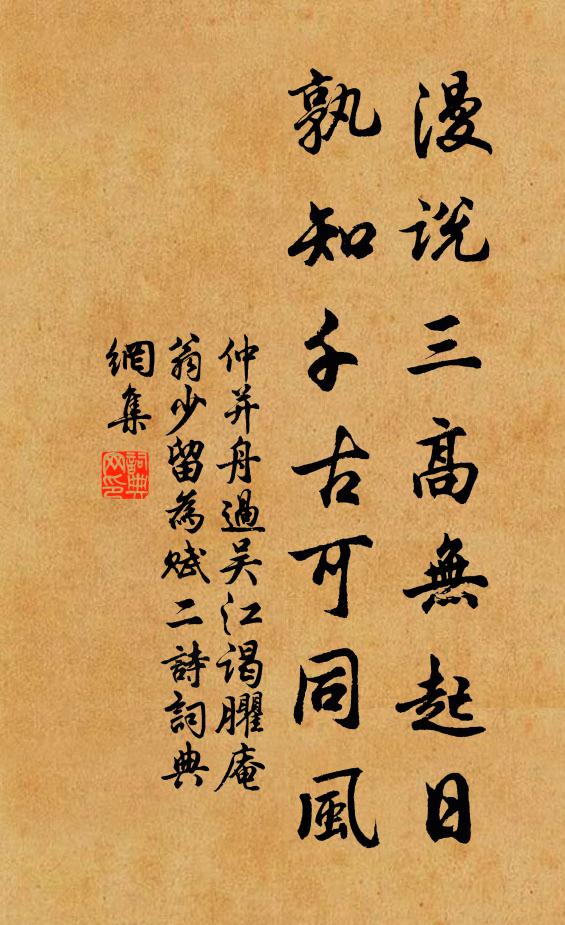 漫説三高無起日
孰知千古可同風
仲并舟過吴江謁臞庵
翁少留為賦二詩詞典
網集
詞典
网印